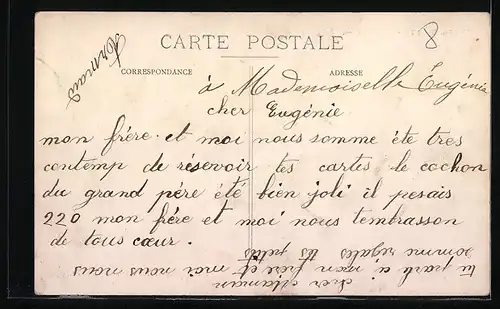 8
Armand
CARTE POSTALE
CORRESPONDANCE
ADRESSE
à Mademoiselle Eugénie
cher Eugénie
mon frére et moi nous somme éte tres
contemp de réservoir tes cartes le cochon
du grand pére été bien joli il pesais
220 mon frére et moi nous tembrasson
de tous cœur.
cher
tu parle si mon frére et moi nous nous
somme régales tes petis